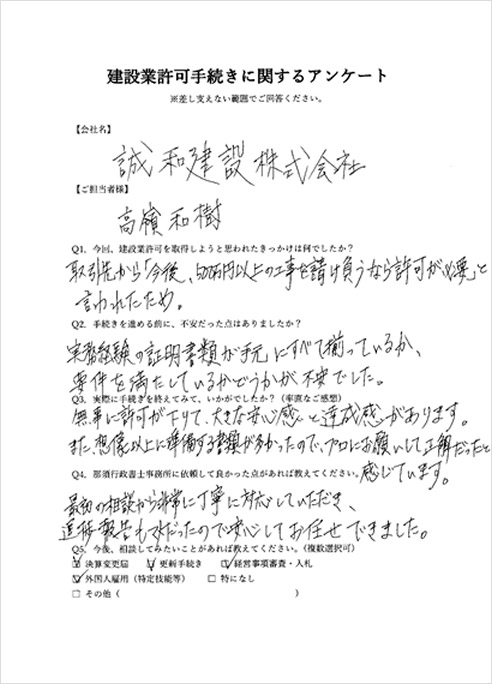 建設業許可手続きに関するアンケート
※差し支えない範囲でご回答ください。
【会社名】
誠和建設株式会社
【ご担当者様】
高嶺和樹
Q1. 今回、建設業許可を取得しようと思われたきっかけは何でしたか？
取引先から「今後、500万円以上の工事を請け負うなら許可が必要」と
言われたため。
Q2. 手続きを進める前に、不安だった点はありましたか？
実務経験の証明書類が手元にすべて揃っているか、
要件を満たしているかどうかが不安でした。
Q3. 実際に手続きを終えてみて、いかがでしたか？（率直なご感想）
無事に許可が下りて、大きな安心感と達成感があります。
また、想像以上に準備する書類が多かったので、プロにお願いして正解だったと
感じています。
Q4. 那須行政書士事務所に依頼して良かった点があれば教えてください。
最初の相談から非常に丁寧に対応していただき、
進捗報告もだったので安心してお任せできました。
Q5. 今後、相談してみたいことがあれば教えてください。（複数選択可）
☑ 決算変更届 ☑ 更新手続き ☑ 経営事項審査・入札
☑ 外国人雇用（特定技能等） □ 特になし
□ その他（ ）